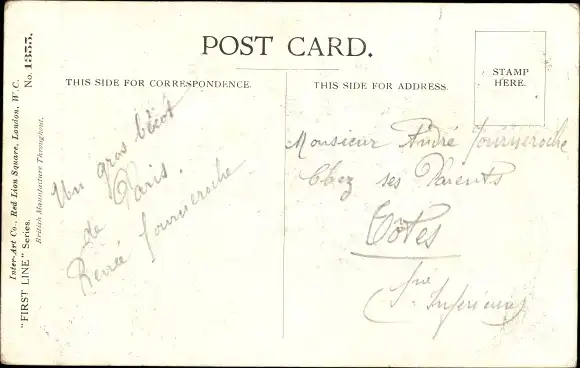 POST CARD.
THIS SIDE FOR CORRESPONDENCE.
THIS SIDE FOR ADDRESS.
STAMP
HERE.
Un gros bécot
de Paris.
Renée Fourneroche
Monsieur André Fourneroche
Chez ses Parents
Tôtes
Sne Inférieure
Inter-Art Co., Red Lion Square, London, W.C.
"FIRST LINE" Series.
British Manufacture Throughout.
No. 1355.